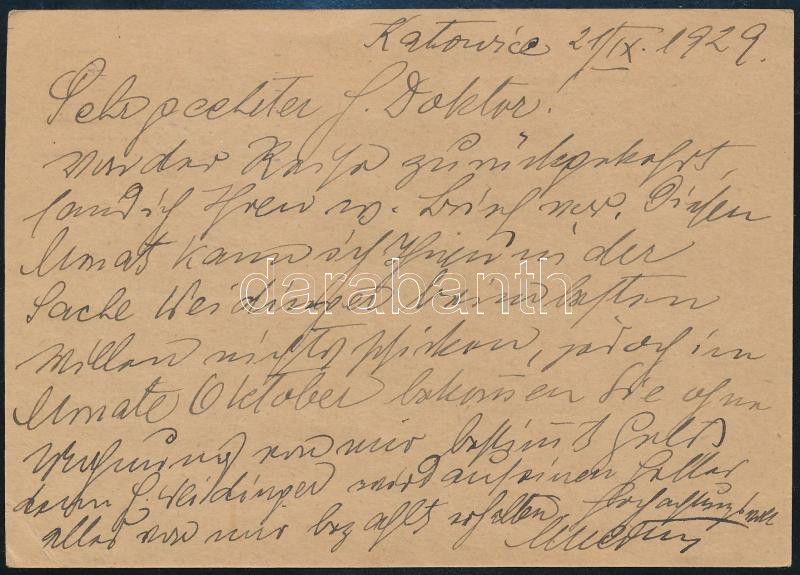 Katowice 21/IX. 1929.
Sehr geehrter H. Doktor!
Von der Reise zurückgekehrt,
fand ich Ihren w. Brief vor. Diesen
Monat kann ich Ihnen in der
Sache Weidinger beim besten
Willen nichts schicken, jedoch im
Monate Oktober bekommen Sie ohne
von mir bestimmt Geld,
denn H. Weidinger wird auf einen Heller
alles von mir bezahlt erhalten. Hochachtungsvoll
darabanth